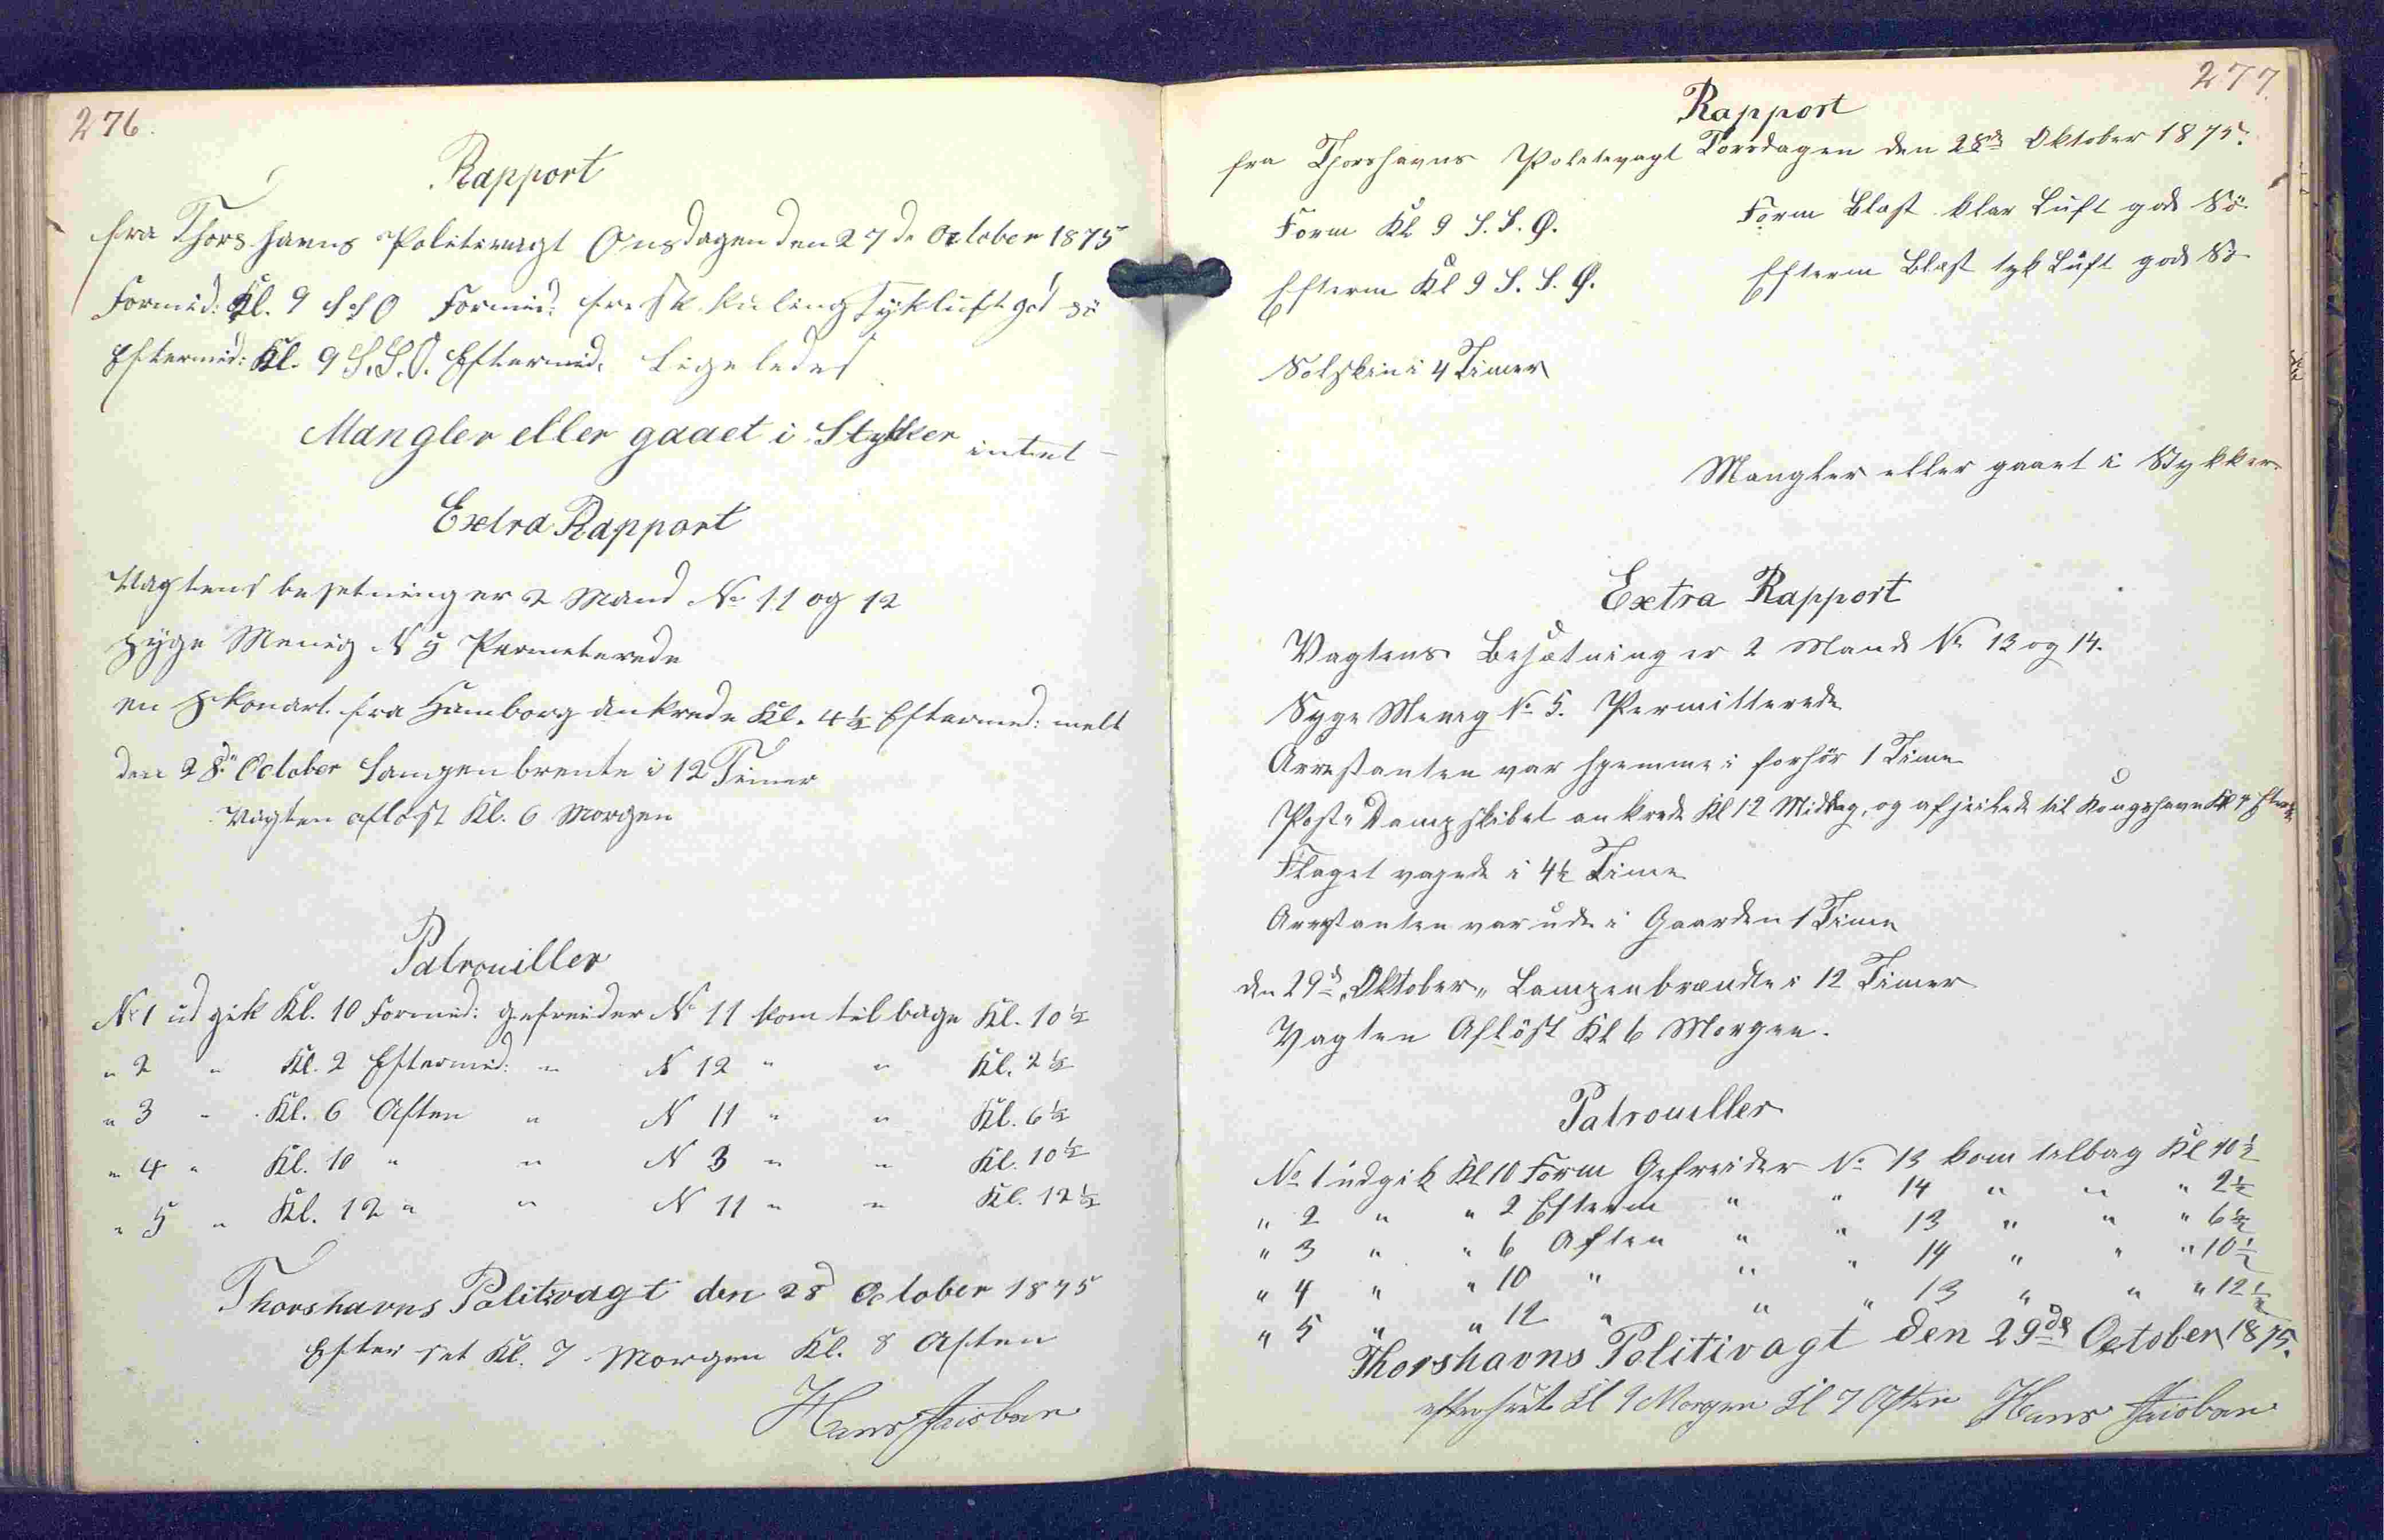 276.
Rapport
fra Thorshavns Politivagt Onsdagen den 27de October 1875
Formid: Kl. 9 SSO Formid: frisk kuling Tykluft god sö
Eftermid: Kl. 9 S.S.O. Eftermid. Ligeledes
Mangler eller gaaet i Stykker intet –
Extra Rapport
Vagtens besetning er 2 Mand No 11 og 12
syge Menig N 5 Permeterede
en Skonart fra Hamborg ankrede Kl. 4½ Eftermed:
den 28de October Lampen brente i 12 Timer
Vagten aflöst Kl. 6 Morgen
Patrouiller
No 1 udgik Kl. 10 Formid: gefreider No 11 kom tilbage Kl. 10½
" 2 " Kl. 2 Eftermid: " N 12 " " Kl. 2½
" 3 " Kl. 6 Aften " N 11 " " Kl. 6½
" 4 " Kl. 10 " " N 3 " " Kl. 10½
" 5 " Kl. 12 " " N 11 " " Kl. 12½
Thorshavns Politivagt den 28d October 1875
Efter set Kl. 7 Morgen Kl. 8 Aften
Hans Jacobsen
277.
Rapport
fra Thorshavns Politivagt Torsdagen den 28de Oktober 1875.
Form Kl 9 S.S.Ø. Form Blæst klar Luft god Sö
Efterm Kl 9 S.S.Ø. Efterm Blæst tyk Luft god Sö
Solskin i 4 Timer
Mangler eller gaaet i Stykker
Extra Rapport
Vagtens Besætning er 2 Mand No 13 og 14.
Syge Menig No 5. Permitterede
Arrestanten var hjemme i forhör 1 Time
Post" Dampskibet ankrede Kl 12 Middag, og afseilede til Kongshavn Kl 4 Efterm
Flaget vajede i 4½ Time
Arrestanten var ude i Gaarden 1 Time
den 29de "Oktober" Lampen brændte i 12 Timer
Vagten Aflöst Kl 6 Morgen.
Patrouiller
No 1 udgik Kl 10 Form Gefreider No 13 kom tilbag Kl 10½
" 2 " " 2 Efterm " " 14 " " " 2½
" 3 " " 6 Aften " " 13 " " " 6½
" 4 " " 10 " " " 14 " " " 10½
" 5 " " 12 " " " 13 " " " 12½
Thorshavns Politivagt den 29de October 1875.
efterseet Kl 7 Morgen Kl 7 Aften Hans Jacobsen